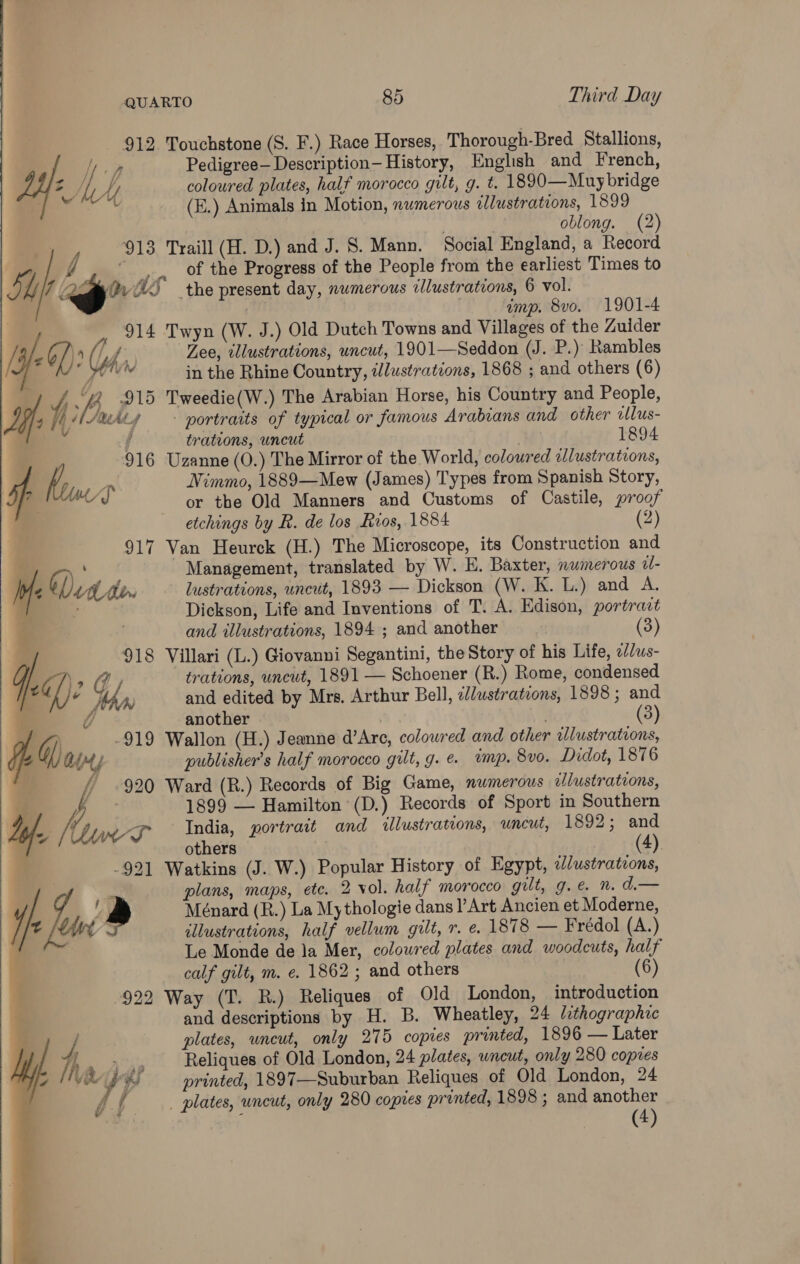 QUARTO 85 Third Day
912 Touchstone (S. F.) Race Horses, Thorough-Bred Stallions,
Pedigree—Description—History, English and French,
coloured plates, half morocco gilt, g. t. 1890—Muybridge
(E.) Animals in Motion, numerous illustrations, 1899
oblong. (2)
913 Traill (H. D.) and J. S. Mann. Social England, a Record
of the Progress of the People from the earliest Times to
the present day, numerous illustrations, 6 vol.
imp. 8vo. 1901-4
914 Twyn (W. J.) Old Dutch Towns and Villages of the Zuider
Zee, illustrations, uncut, 1901—Seddon (J. P.) Rambles
in the Rhine Country, illustrations, 1868 ; and others (6)
915 Tweedie(W.) The Arabian Horse, his Country and People,
portraits of typical or famous Arabians and other illus-
trations, uncut 1894
916 Uzanne (O.) The Mirror of the World, coloured illustrations,
Nimmo, 1889—Mew (James) Types from Spanish Story,
or the Old Manners and Customs of Castile, proof
etchings by R. de los Rios, 1884 (2)
917 Van Heurck (H.) The Microscope, its Construction and
Management, translated by W. E. Baxter, numerous il-
lustrations, uncut, 1893 — Dickson (W. K. L.) and A.
Dickson, Life and Inventions of T. A. Edison, portrait
and illustrations, 1894 ; and another (3)
918 Villari (L.) Giovanni Segantini, the Story of his Life, illus-
trations, uncut, 1891 — Schoener (R.) Rome, condensed
and edited by Mrs. Arthur Bell, illustrations, 1898 ; and
another (3)
919 Wallon (H.) Jeanne d'Arc, coloured and other illustrations,
publisher's half morocco gilt, g. e. imp. 8vo. Didot, 1876
920 Ward (R.) Records of Big Game, numerous illustrations,
1899 — Hamilton (D.) Records of Sport in Southern
India, portrait and illustrations, uncut, 1892; and
others (4)
921 Watkins (J. W.) Popular History of Egypt, illustrations,
plans, maps, etc. 2 vol. half morocco gilt, g. e. n. d.—
Ménard (R.) La Mythologie dans l'Art Ancien et Moderne,
illustrations, half vellum gilt, r. e. 1878 — Frédol (A.)
Le Monde de la Mer, coloured plates and woodcuts, half
calf gilt, m. e. 1862 ; and others (6)
922 Way (T. R.) Reliques of Old London, introduction
and descriptions by H. B. Wheatley, 24 lithographic
plates, uncut, only 275 copies printed, 1896 — Later
Reliques of Old London, 24 plates, uncut, only 280 copies
printed, 1897—Suburban Reliques of Old London, 24
plates, uncut, only 280 copies printed, 1898 ; and another
(4)